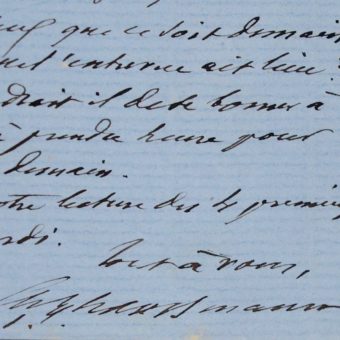 que ce soit demain
l'entrevue ait lieu ?
drait il de te borner à
prendre heure pour
demain.
otre lecture des 4 premiers
rdi.
Tout à vous,